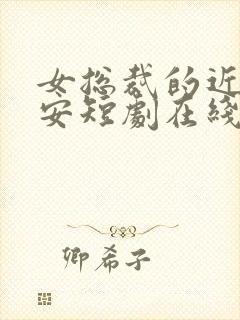 女总裁的近
安短剧在线
卿希子